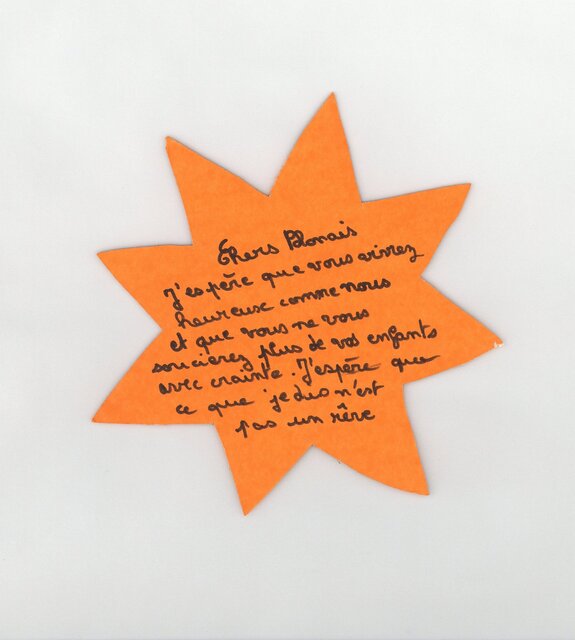 Chers Blonais
J'espère que vous vivrez
heureux comme nous
et que vous ne vous
soucierez plus de vos enfants
avec crainte. J'espère que
ce que je dis n'est
pas un rêve